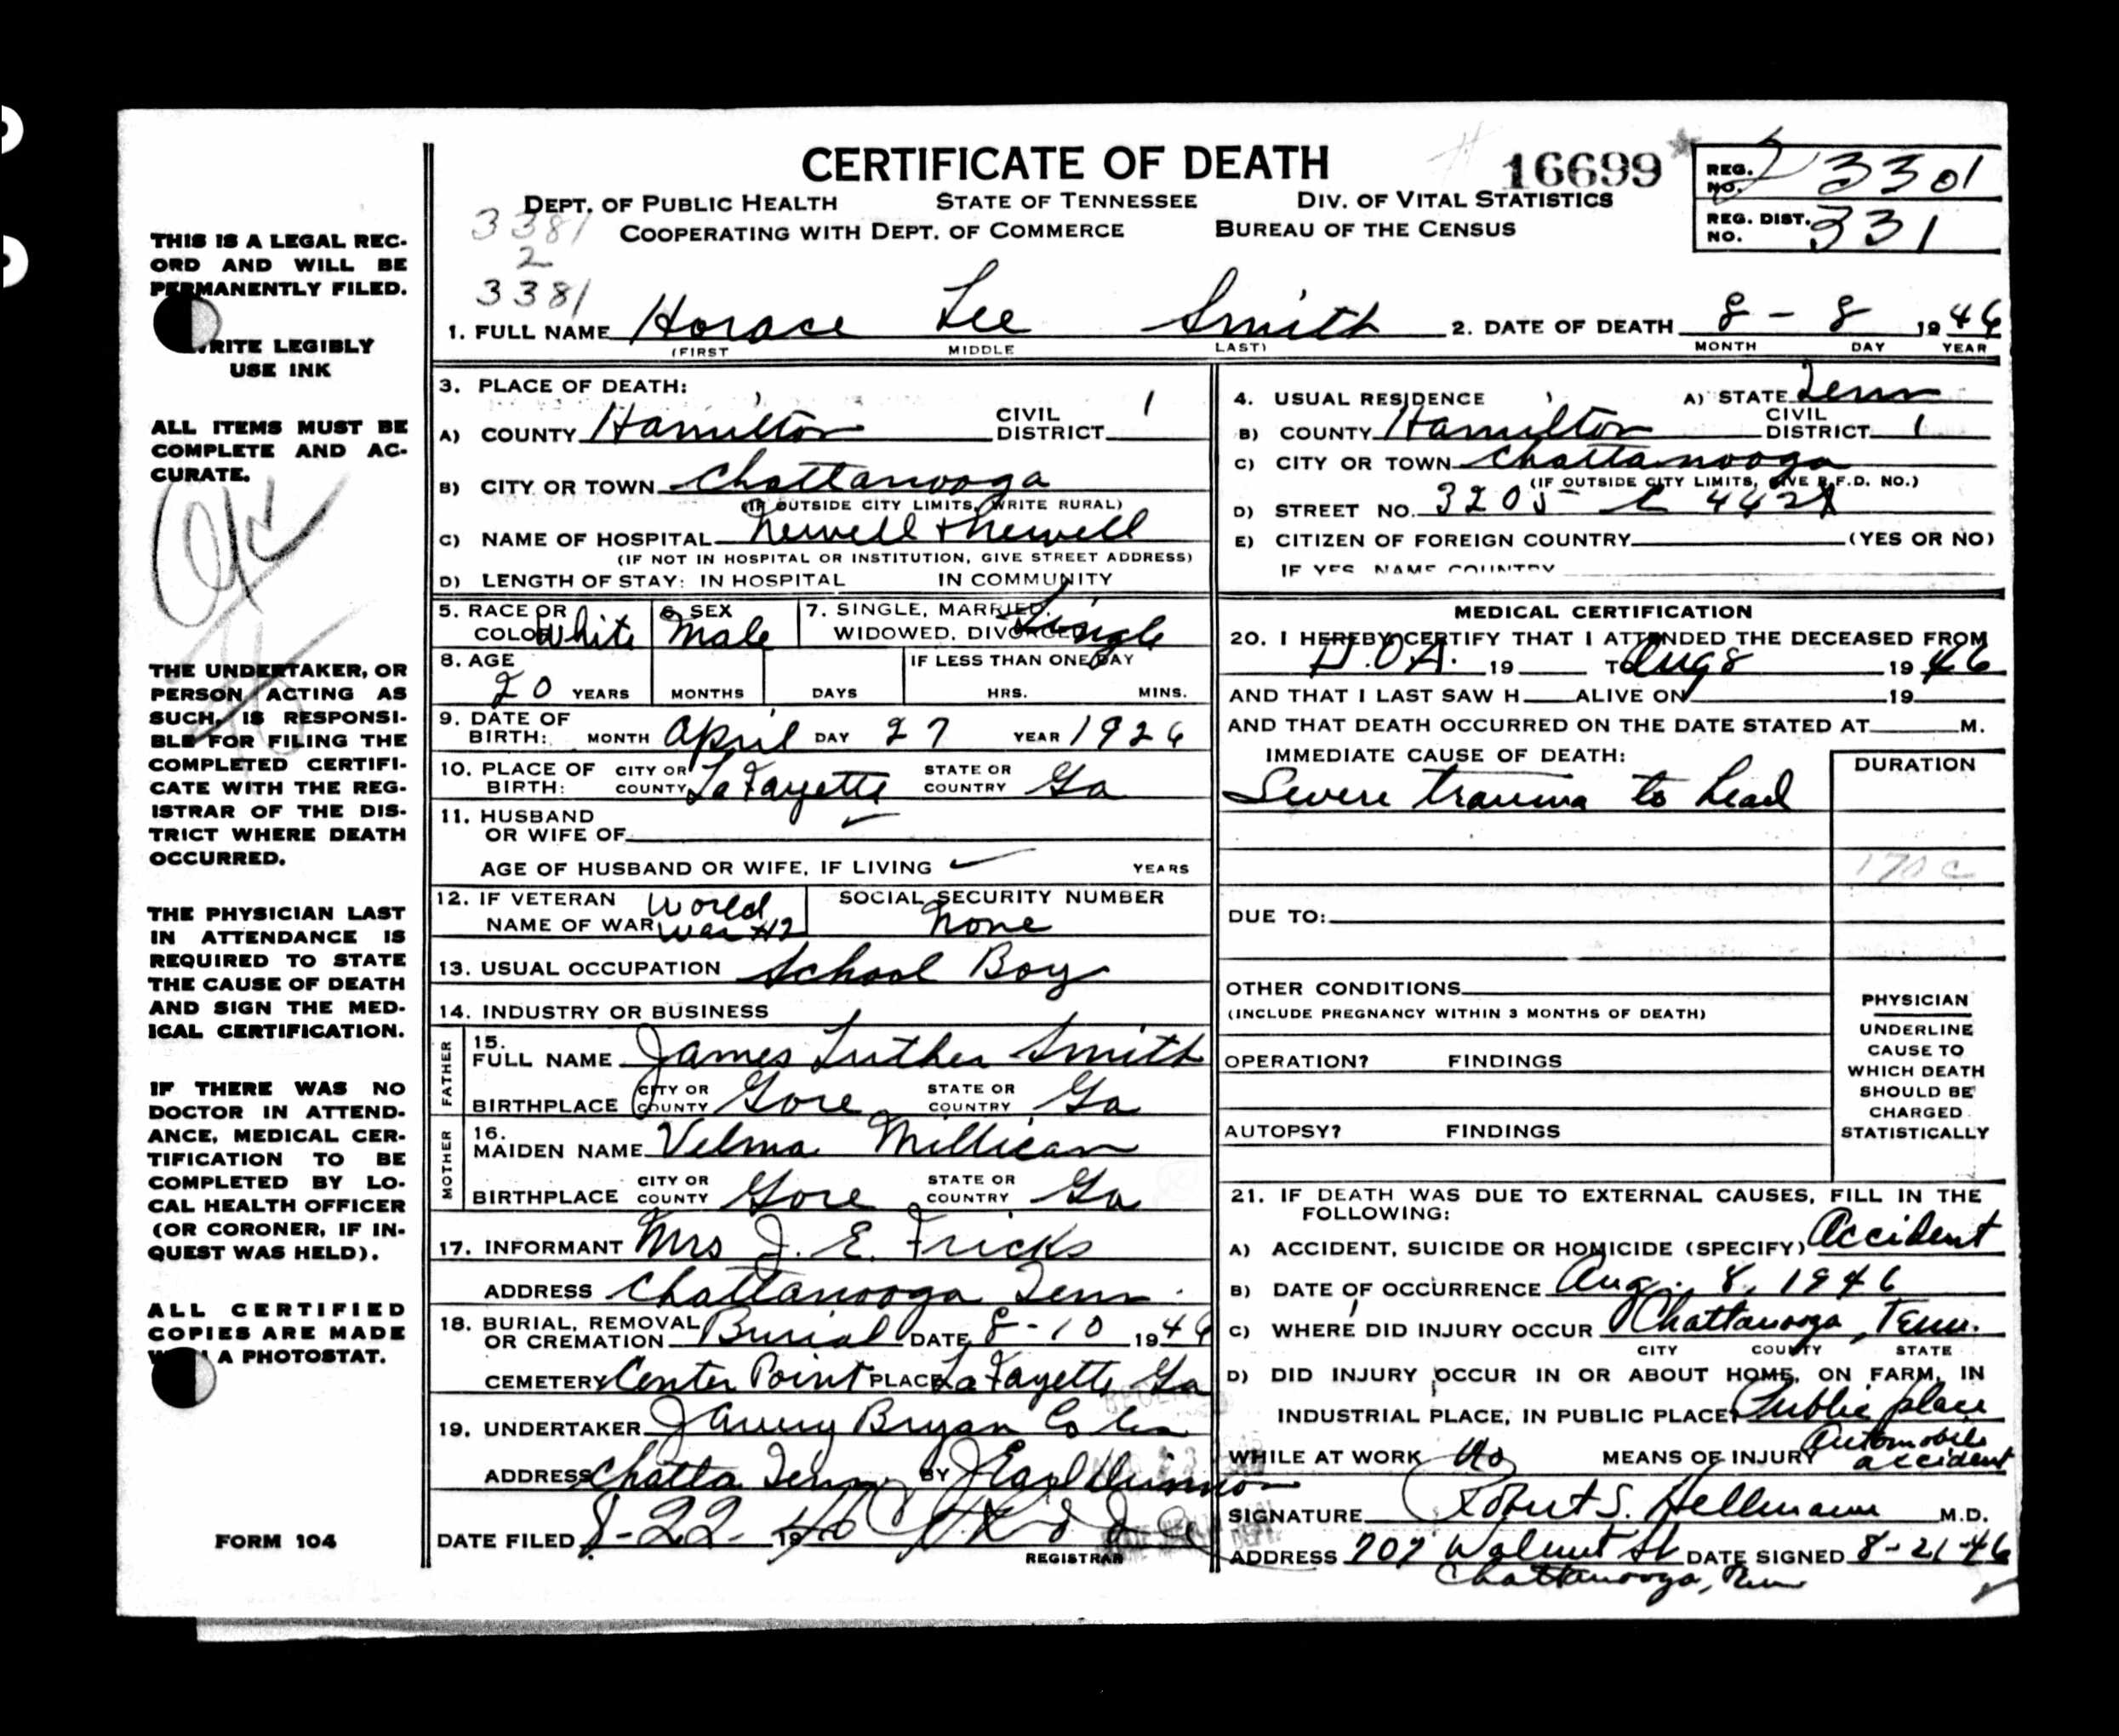 CERTIFICATE OF DEATH
16699
REG. NO. 3301
DEPT. OF PUBLIC HEALTH STATE OF TENNESSEE DIV. OF VITAL STATISTICS
COOPERATING WITH DEPT. OF COMMERCE BUREAU OF THE CENSUS
REG. DIST. NO. 331
3381
2
3381
1. FULL NAME Horace Lee Smith 2. DATE OF DEATH 8 - 8 1946
(FIRST MIDDLE LAST) MONTH DAY YEAR
THIS IS A LEGAL REC-
ORD AND WILL BE
PERMANENTLY FILED.
WRITE LEGIBLY
USE INK
ALL ITEMS MUST BE
COMPLETE AND AC-
CURATE.
OK
THE UNDERTAKER, OR
PERSON ACTING AS
SUCH, IS RESPONSI-
BLE FOR FILING THE
COMPLETED CERTIFI-
CATE WITH THE REG-
ISTRAR OF THE DIS-
TRICT WHERE DEATH
OCCURRED.
THE PHYSICIAN LAST
IN ATTENDANCE IS
REQUIRED TO STATE
THE CAUSE OF DEATH
AND SIGN THE MED-
ICAL CERTIFICATION.
IF THERE WAS NO
DOCTOR IN ATTEND-
ANCE, MEDICAL CER-
TIFICATION TO BE
COMPLETED BY LO-
CAL HEALTH OFFICER
(OR CORONER, IF IN-
QUEST WAS HELD).
ALL CERTIFIED
COPIES ARE MADE
A PHOTOSTAT.
FORM 104
3. PLACE OF DEATH:
A) COUNTY Hamilton CIVIL DISTRICT 1
B) CITY OR TOWN Chattanooga
(IF OUTSIDE CITY LIMITS, WRITE RURAL)
C) NAME OF HOSPITAL Newell & Newell
(IF NOT IN HOSPITAL OR INSTITUTION, GIVE STREET ADDRESS)
D) LENGTH OF STAY: IN HOSPITAL IN COMMUNITY
5. RACE OR COLOR White 6. SEX Male 7. SINGLE, MARRIED, WIDOWED, DIVORCED Single
8. AGE 20 YEARS MONTHS DAYS IF LESS THAN ONE DAY HRS. MINS.
9. DATE OF BIRTH: MONTH April DAY 27 YEAR 1926
10. PLACE OF BIRTH: CITY OR COUNTY LaFayette STATE OR COUNTRY Ga
11. HUSBAND OR WIFE OF
AGE OF HUSBAND OR WIFE, IF LIVING YEARS
12. IF VETERAN NAME OF WAR World War #2 SOCIAL SECURITY NUMBER None
13. USUAL OCCUPATION School Boy
14. INDUSTRY OR BUSINESS
FATHER
15. FULL NAME James Luther Smith
BIRTHPLACE CITY OR COUNTY Gore STATE OR COUNTRY Ga
MOTHER
16. MAIDEN NAME Velma Millican
BIRTHPLACE CITY OR COUNTY Gore STATE OR COUNTRY Ga
17. INFORMANT Mrs J. E. Fricks
ADDRESS Chattanooga Tenn.
18. BURIAL, REMOVAL OR CREMATION Burial DATE 8-10 1946
CEMETERY Center Point PLACE LaFayette Ga
19. UNDERTAKER Bryan Co
ADDRESS Chatta Tenn BY J Earl
DATE FILED 8-22- 1946
REGISTRAR
4. USUAL RESIDENCE A) STATE Tenn
B) COUNTY Hamilton CIVIL DISTRICT 1
C) CITY OR TOWN Chattanooga
(IF OUTSIDE CITY LIMITS, GIVE R.F.D. NO.)
D) STREET NO. 3205 E 44
E) CITIZEN OF FOREIGN COUNTRY (YES OR NO)
IF YES, NAME COUNTRY
MEDICAL CERTIFICATION
20. I HEREBY CERTIFY THAT I ATTENDED THE DECEASED FROM
D.O.A. 19 TO Aug 8 1946
AND THAT I LAST SAW H ALIVE ON 19
AND THAT DEATH OCCURRED ON THE DATE STATED AT M.
IMMEDIATE CAUSE OF DEATH: DURATION
Severe trauma to head
170 c
DUE TO:
OTHER CONDITIONS
(INCLUDE PREGNANCY WITHIN 3 MONTHS OF DEATH)
OPERATION? FINDINGS
AUTOPSY? FINDINGS
PHYSICIAN
UNDERLINE
CAUSE TO
WHICH DEATH
SHOULD BE
CHARGED
STATISTICALLY
21. IF DEATH WAS DUE TO EXTERNAL CAUSES, FILL IN THE
FOLLOWING:
A) ACCIDENT, SUICIDE OR HOMICIDE (SPECIFY) Accident
B) DATE OF OCCURRENCE Aug. 8, 1946
C) WHERE DID INJURY OCCUR Chattanooga, Tenn.
CITY COUNTY STATE
D) DID INJURY OCCUR IN OR ABOUT HOME, ON FARM, IN
INDUSTRIAL PLACE, IN PUBLIC PLACE? Public place
WHILE AT WORK No MEANS OF INJURY Automobile accident
SIGNATURE Robert S. Hellmann M.D.
ADDRESS 707 Walnut St DATE SIGNED 8-21-46
Chattanooga, Tenn